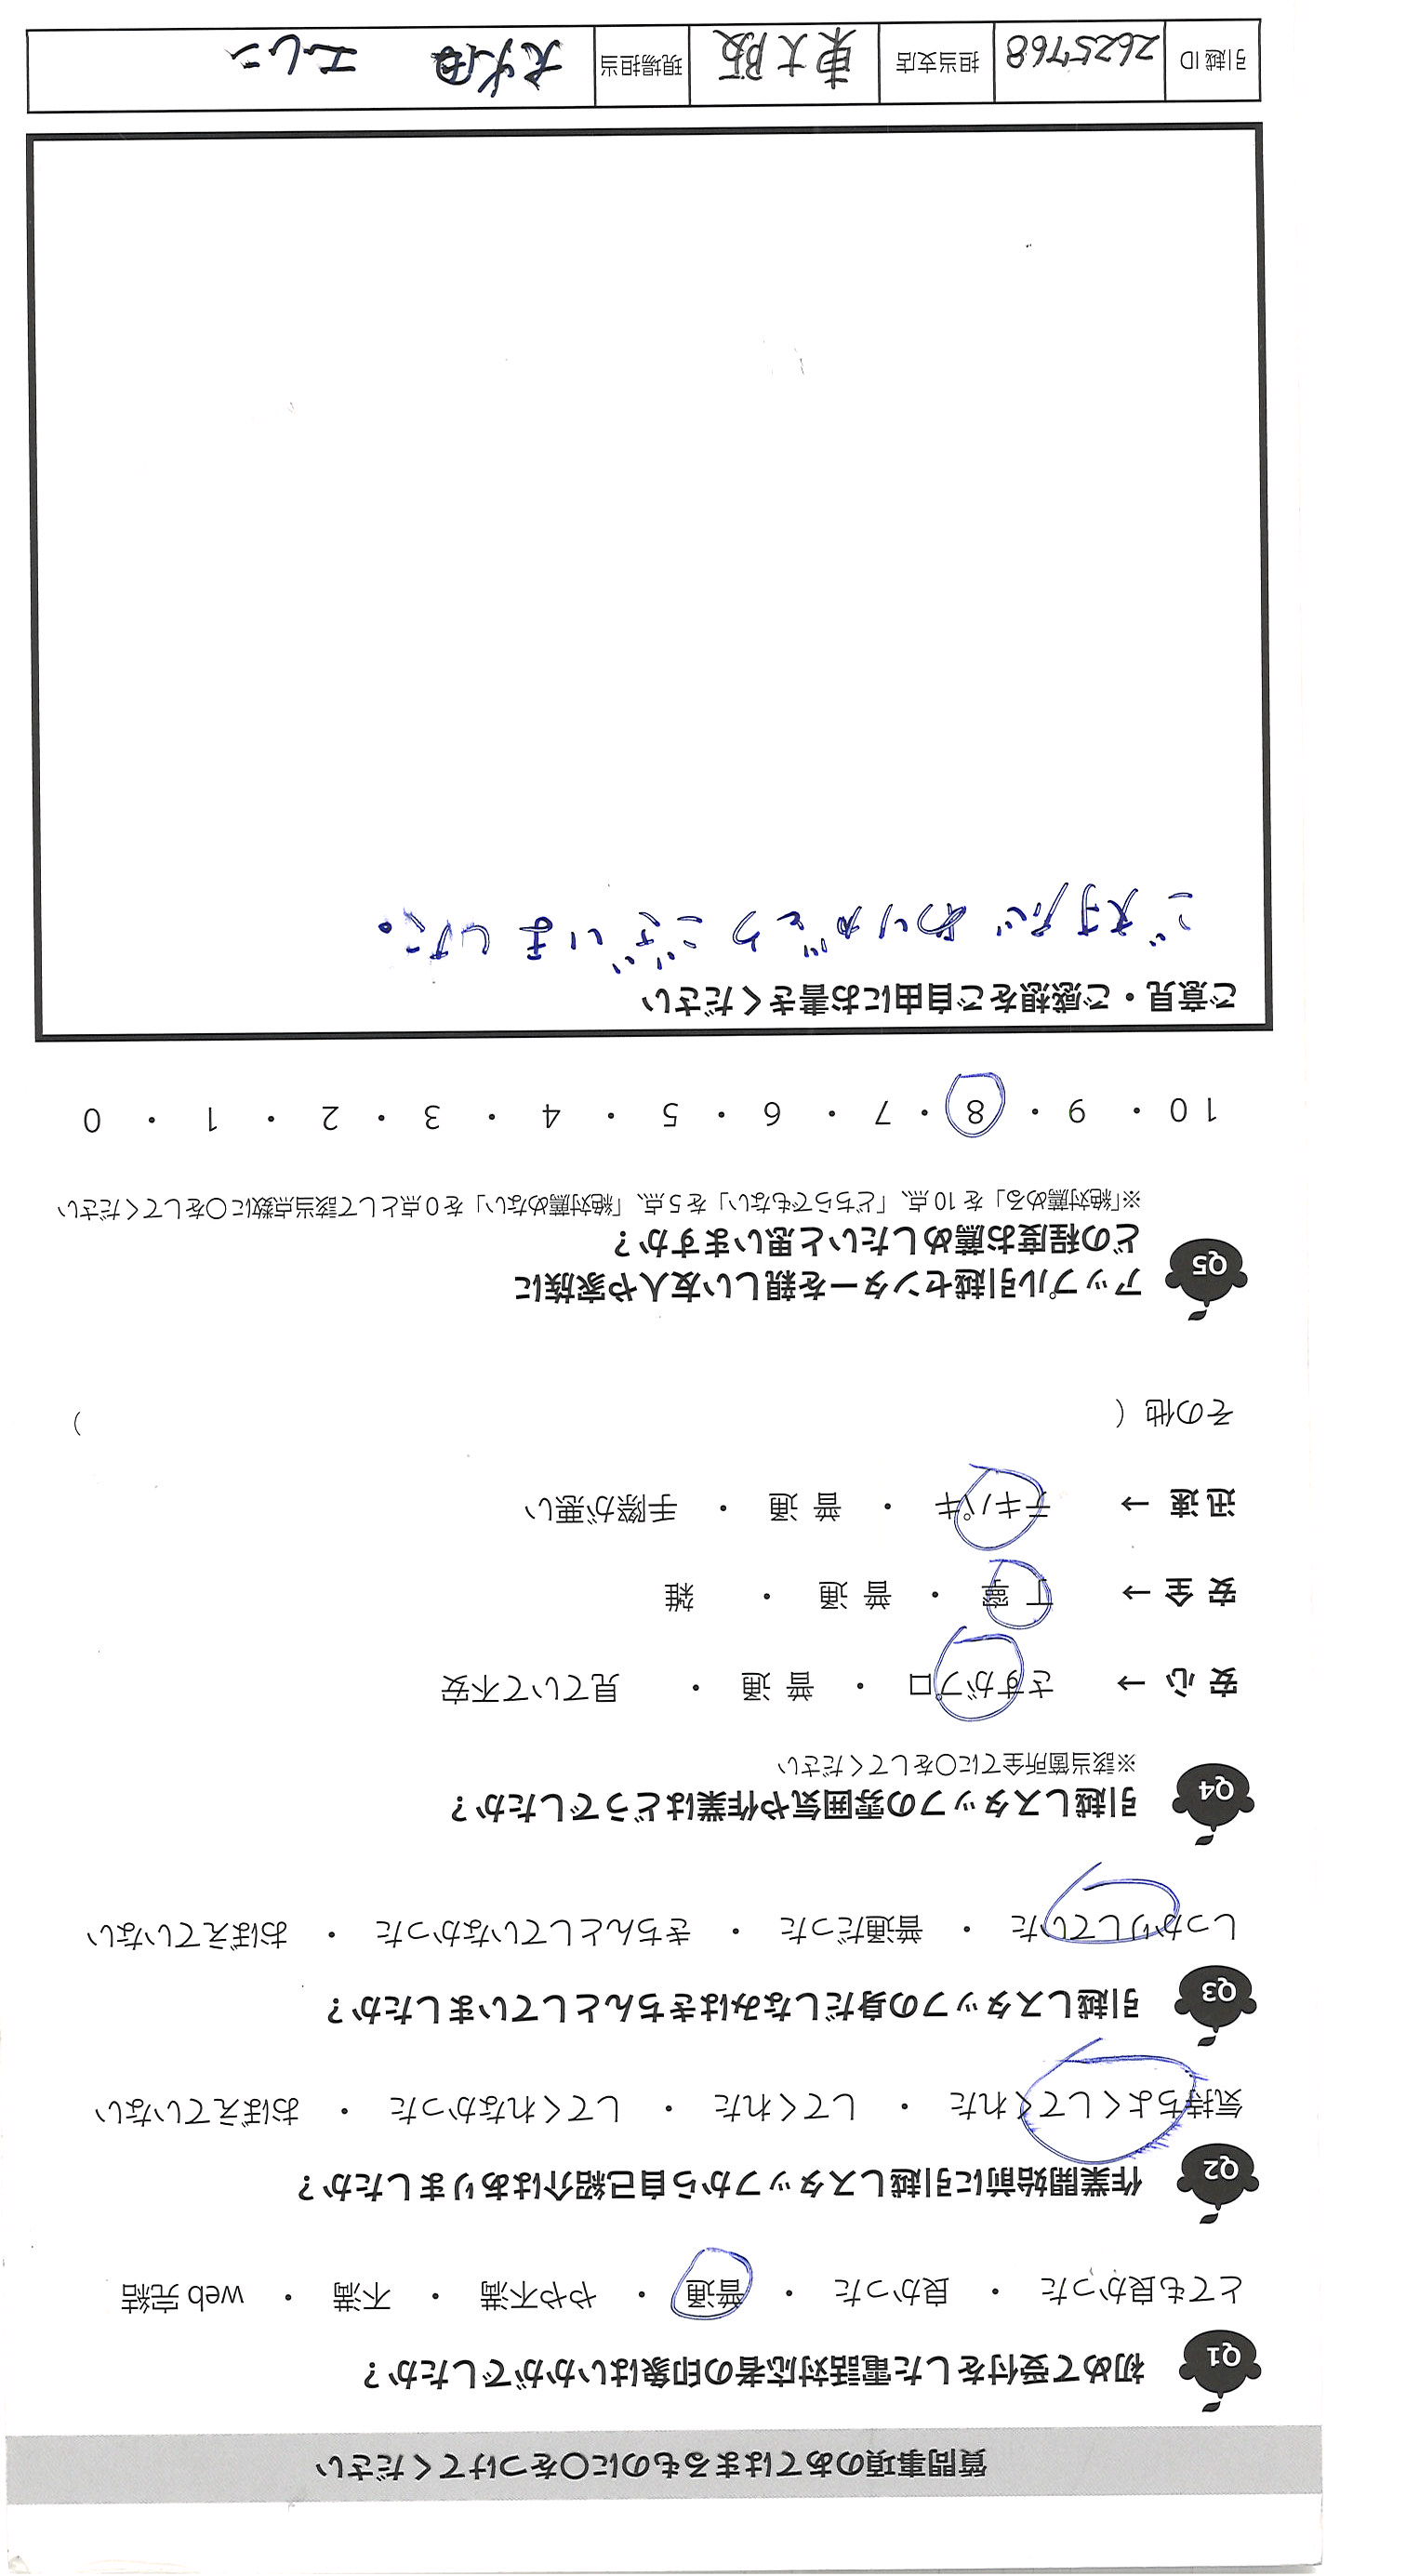 質問事項のあてはまるものに〇をつけてください
Q1 初めて受付をした電話対応者の印象はいかがでしたか？
とても良かった ・ 良かった ・ 普通 ・ やや不満 ・ 不満 ・ web 完結
Q2 作業開始前に引越しスタッフから自己紹介はありましたか？
気持ちよくしてくれた ・ してくれた ・ してくれなかった ・ おぼえていない
Q3 引越しスタッフの身だしなみはきちんとしていましたか？
しっかりしていた ・ 普通だった ・ きちんとしていなかった ・ おぼえていない
Q4 引越しスタッフの雰囲気や作業はどうでしたか？
※該当箇所全てに〇をしてください
安 心 → さすがプロ ・ 普 通 ・ 見ていて不安
安 全 → 丁 寧 ・ 普 通 ・ 雑
迅 速 → テキパキ ・ 普 通 ・ 手際が悪い
その他（ ）
Q5 アップル引越センターを親しい友人や家族に
どの程度お薦めしたいと思いますか？
※「絶対薦める」を 10 点、「どちらでもない」を 5 点、「絶対薦めない」を 0 点として該当点数に〇をしてください
10 ・ 9 ・ 8 ・ 7 ・ 6 ・ 5 ・ 4 ・ 3 ・ 2 ・ 1 ・ 0
ご意見・ご感想をご自由にお書きください
ご対応ありがとうございました。
引越 ID 2625768 担当支店 東大阪 現場担当